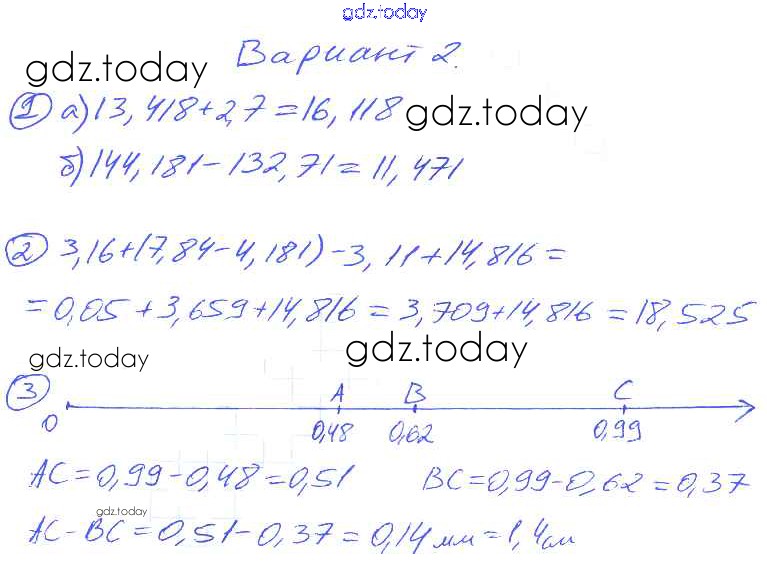 gdz.today
Вариант 2.
gdz.today
1 а) 13,418+2,7=16,118 gdz.today
б) 144,181-132,71=11,471
2 3,16+(7,84-4,181)-3,11+14,816=
=0,05+3,659+14,816=3,709+14,816=18,525
gdz.today gdz.today
3 A B C
0 0,48 0,62 0,99
AC=0,99-0,48=0,51 BC=0,99-0,62=0,37
gdz.today
AC-BC=0,51-0,37=0,14мм=1,4см